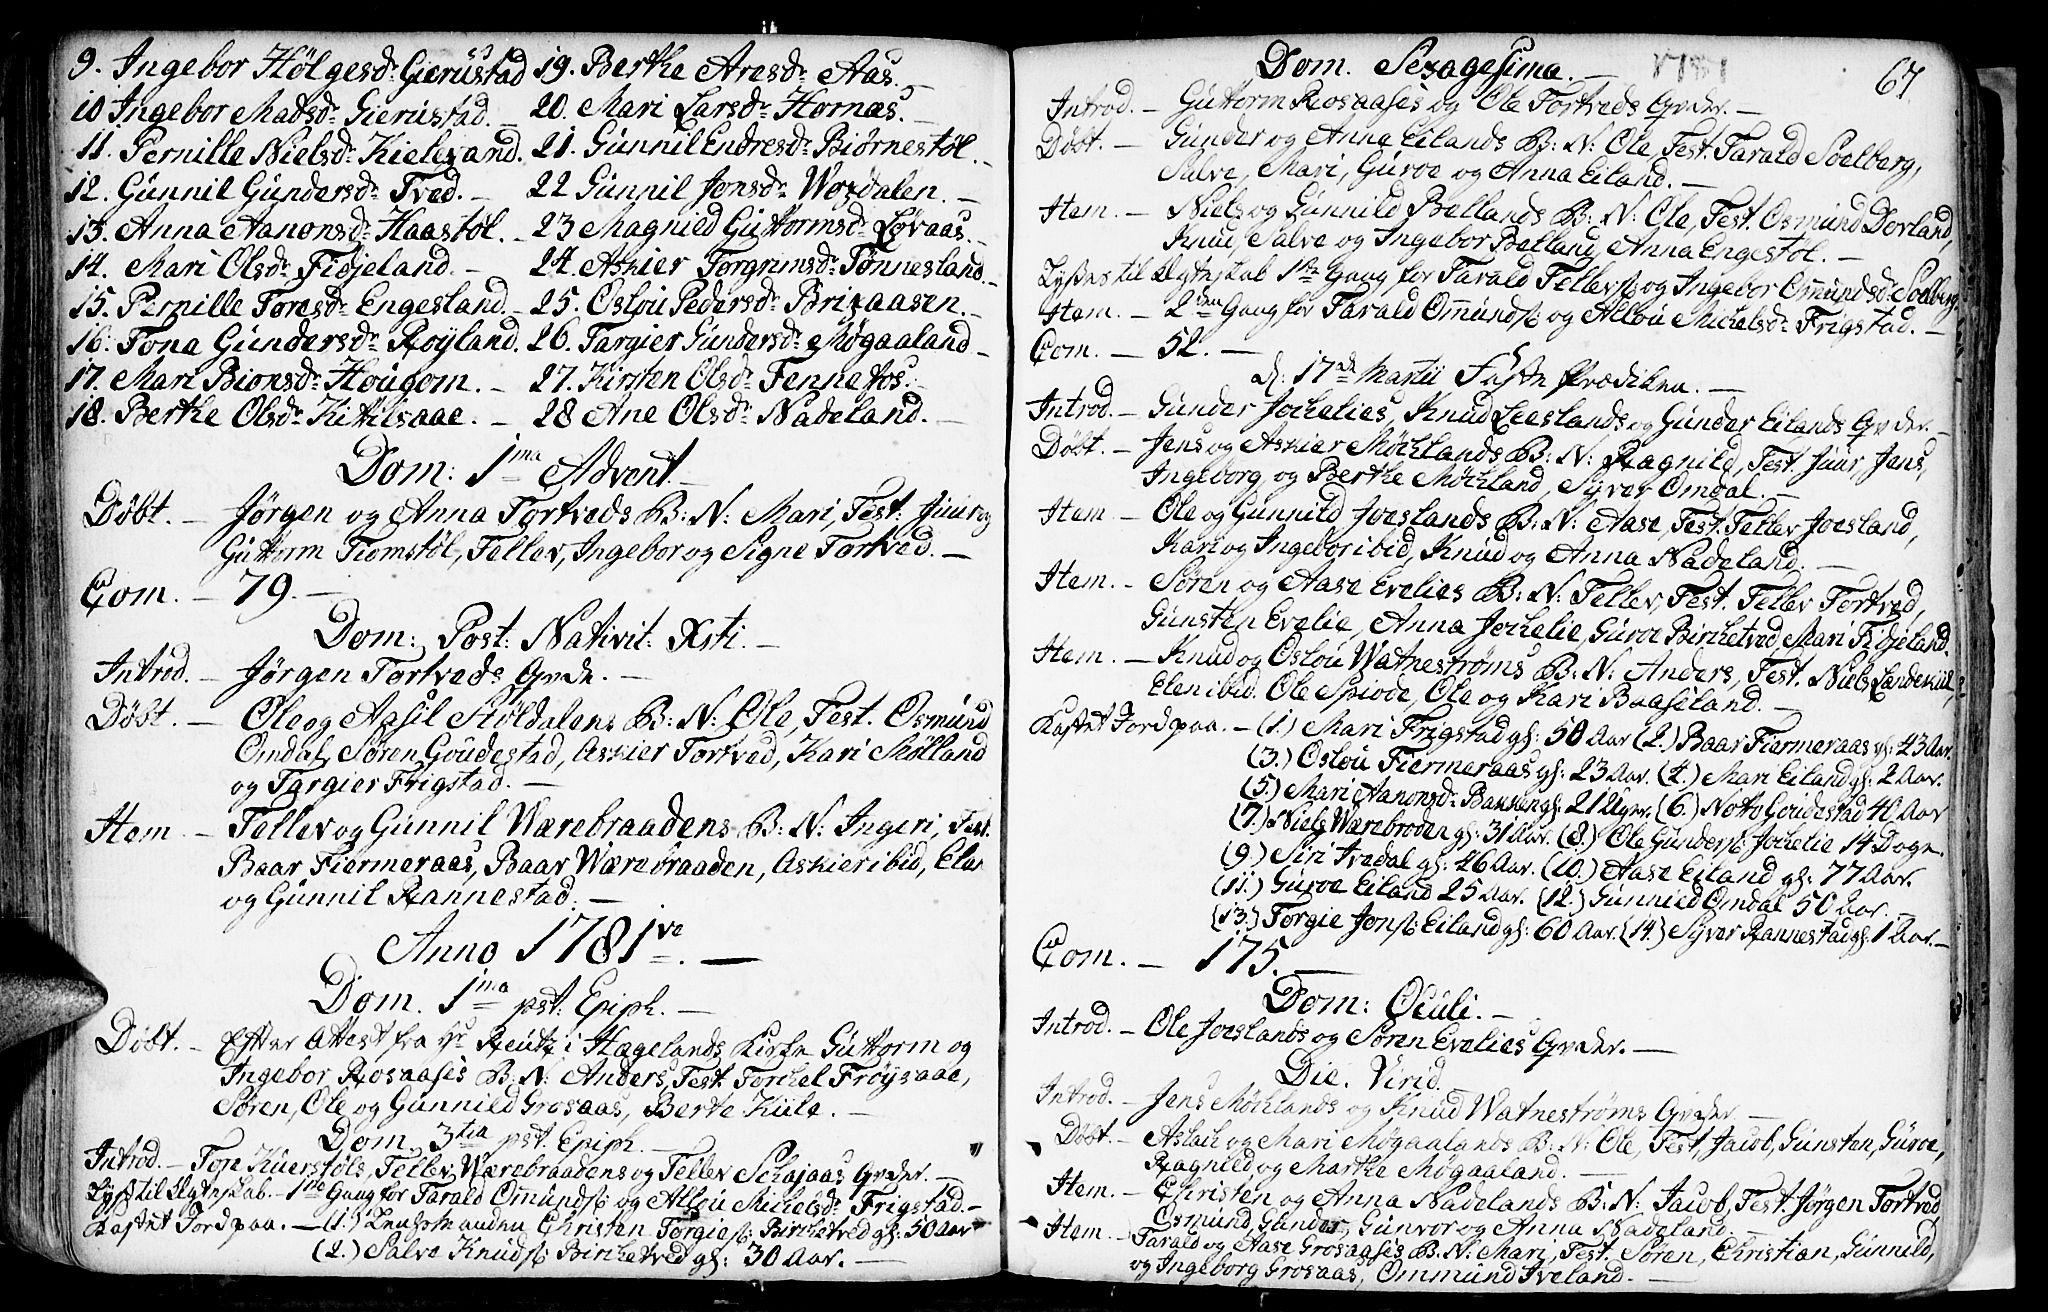 9. Ingebor Hølgesdr. Gierustad
10 Ingebor Matsdr. Gierustad. –
11. Pernille Nielsdr. Kielevand.
12. Gunnil Gundersdr. Tved. –
13. Anna Aanonsdr. Haastøl. –
14. Mari Olsdr. Fidjeland. –
15. Pernille Toresdr. Engesland. –
16. Tona Gundersdr. Røyland.
17. Mari Bionsdr. Hougom. –
18. Berthe Olsdr. Kittilsaae. –
19. Berthe Aresdr. Aas. –
20. Mari Larsdr. Hornæs. –
21. Gunnil Endresdr. Biørnestøl. –
22 Gunnil Jonsdr. Wozdalen. –
23 Magnied Guttormsdr. Løvaas. –
24. Askier Torgrimsdr. Tønnesland. –
25. Oslou Pedersdr. Brizaasen. –
26. Targier Gundersdr. Møgaaland –
27. Kirsten Olsdr. Fennefos. –
28 Ane Olsdr. Nadeland. –
Dom: 1ma Advent. –
Døbt. – Jørgen og Anna Tortveds B: N: Mari, Test: Juur og
Guttorm Tiomstøl, Tellev, Ingebor og Signe Tortved. –
Com. – 79. –
Dom: Post: Nativit: Xsti. –
Introd. – Jørgen Tortveds Qvde. –
Døbt. – Ole og Aasil Støldalens B: N: Ole, Test. Osmund
Omdal, Søren Goudestad, Askier Tortved, Kari Mølland
og Targier Frigstad. –
Item. – Tellev og Gunnil Wærebraadens B: N: Ingeri, Test.
Baar Fiermeraas, Baar Wærebraaden, Askier ibid, Elen
og Gunnil Rannestad. –
Anno 1781ve. –
Dom. 1ma pst. Epiph. –
Døbt. – Efter Attest fra Hr. Reutz i Hægelands Kirke Guttorm og
Ingebor Rosaases B: N: Anders, Test. Torchel Frøysaae,
Søren, Ole og Gunnild Grosaas, Berte Kiile. –
Dom. 3tia pst. Epiph. –
Introd. – Tore Kuerstøls, Tellev Wærebraadens og Tellev Schajaas Qvder. –
Lyst til Ægteskab. – 1ne Gang for Tarald Omundss. og Allou Michelsdr. Frigstad. –
Kastet Jord paa. – (1.) Christen Torgiess. Birchetved gl: 50 Aar
(2.) Salve Knudss. Birchetved gl: 30 Aar. –
Dom. Sexagesima. – 1781 67
Introd. – Guttorm Rosaases og Ole Tortveds Qvder. –
Døbt. – Gunder og Anna Eilands B: N: Ole, Test. Tarald Soelberg,
Salve, Mari, Guroe og Anna Eiland. –
Item. – Niels og Gunnild Bellands B: N: Ole, Test. Osmund Dovland,
Knud, Salve og Ingebor Belland, Anna Engestøl. –
Lystes til Ægteskab 1ste Gang for Tarald Tellevss. og Ingebor Omundsdr. Soelberg
Item. – 2den Gang for Tarald Omundss. og Allou Michelsdr. Frigstad. –
Com. – 52. –
d. 17de Martii Faste Prædiken. –
Introd. – Gunder Jochelies, Knud Leeslands og Gunder Eilands Qvder. –
Døbt. – Jens og Askier Mòchlands B: N: Ragnild, Test. Juur, Jens,
Ingeborg og Berthe Mòchland, Syver Omdal. –
Item – Ole og Gunnild Joeslands B: N: Aase, Test. Tellev Joesland,
Kari og Ingebor ibid, Knud og Anna Nadeland. –
Item. – Søren og Aase Evelies B: N: Tellev, Test. Tellev Tortved,
Gunsten Evelie, Anna Jochelie, Guroe Birchetved, Mari Fidjeland.
Item. – Knud og Oslou Watnestrøms B: N: Anders, Test. Niels Landekiil,
Elen ibid. Ole Spiode, Ole og Kari Baaseland. –
Kastet Jord paa. – (1.) Mari Frigstad gl: 50 Aar (2.) Baar Fiermeraas gl: 43 Aar.
(3.) Oslou Fiermeraas gl: 23 Aar. (4.) Mari Eiland gl: 2 Aar.
(5.) Mari Aanonsdr. Bakken gl: 21 Uger. (6.) Notto Goudestad 40 Aar
(7.) Niels Wærebroden gl: 31 Aar. (8.) Ole Gunderss. Jochelie 14 Dogn.
(9.) Siri Ivedal gl: 26 Aar. (10.) Aase Eiland gl: 77 Aar.
(11.) Guroe Eiland 25 Aar. (12.) Gunnied Omdal 50 Aar.
(13.) Torgie Jonss. Eiland gl: 60 Aar. (14.) Syver Rannestad gl: 1 Aar. –
Com. – 175. –
Dom: Oculi. –
Introd. – Ole Joeslands og Søren Evelies Qvder. –
Die. Virid.
Introd. – Jens Mòchlands og Knud Watnestrøms Qvder. –
Døbt. – Aslach og Mari Møgaalands B: N: Ole, Test. Jacob, Gunsten, Guroe,
Ragnild og Marthe Møgaaland. –
Item. – Christen og Anna Nadelands B: N: Jacob, Test. Jørgen Tortved
Osmund, Gunder, Gunvor og Anna Nadeland. –
Item. – Tarald og Aase Grosaases B: N: Mari, Test. Søren, Christian, Gunnild,
og Ingeborg Grosaas, Ommund Iveland. –